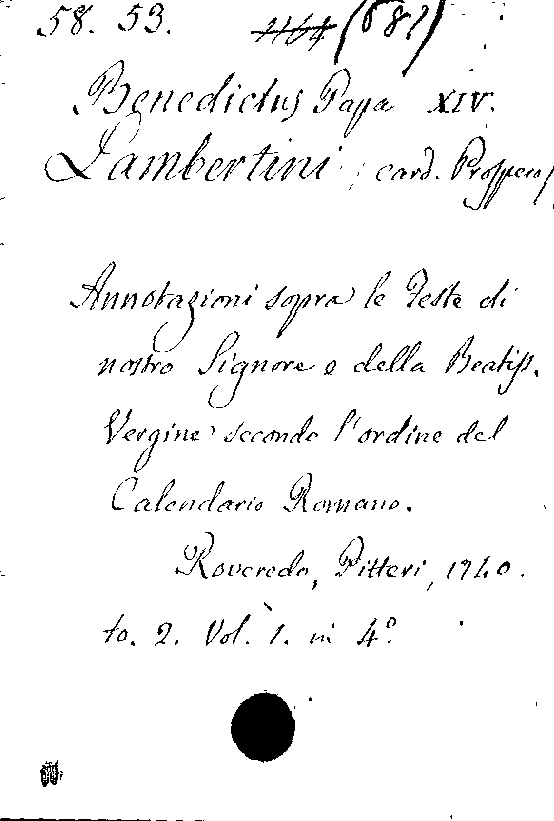 58. 53. 1164 (681)
Benedictus Papa XIV.
Lambertini, card. Prospero,
Annotazioni sopra le Feste di
nostro Signore e della Beatiss.
Vergine secondo l'ordine del
Calendario Romano.
Roveredo, Pitteri, 1740.
to. 2. Vol. 1. in 4º